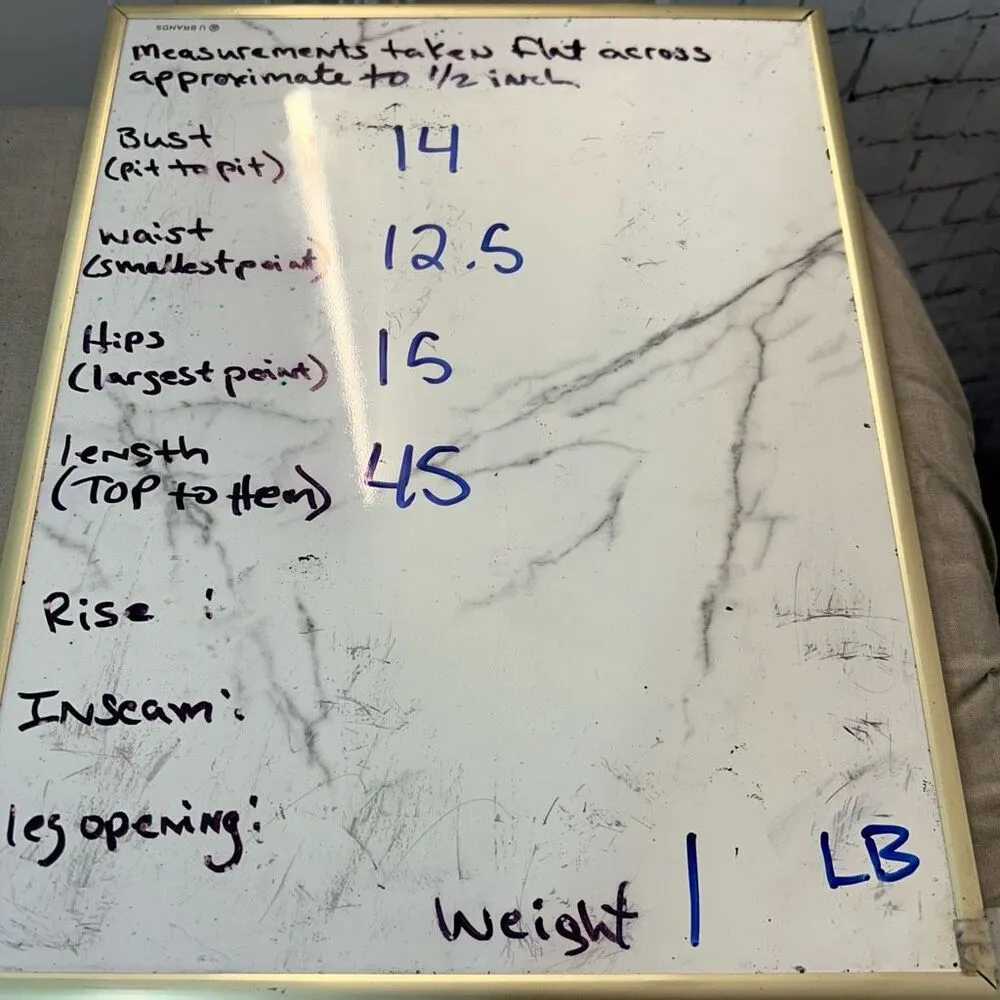 U BRANDS
Measurements taken flat across
approximate to 1/2 inch
Bust 14
(pit to pit)
waist 12.5
(smallest point)
Hips 15
(largest point)
length 45
(TOP to Hem)
Rise :
Inseam :
leg opening:
Weight 1 LB